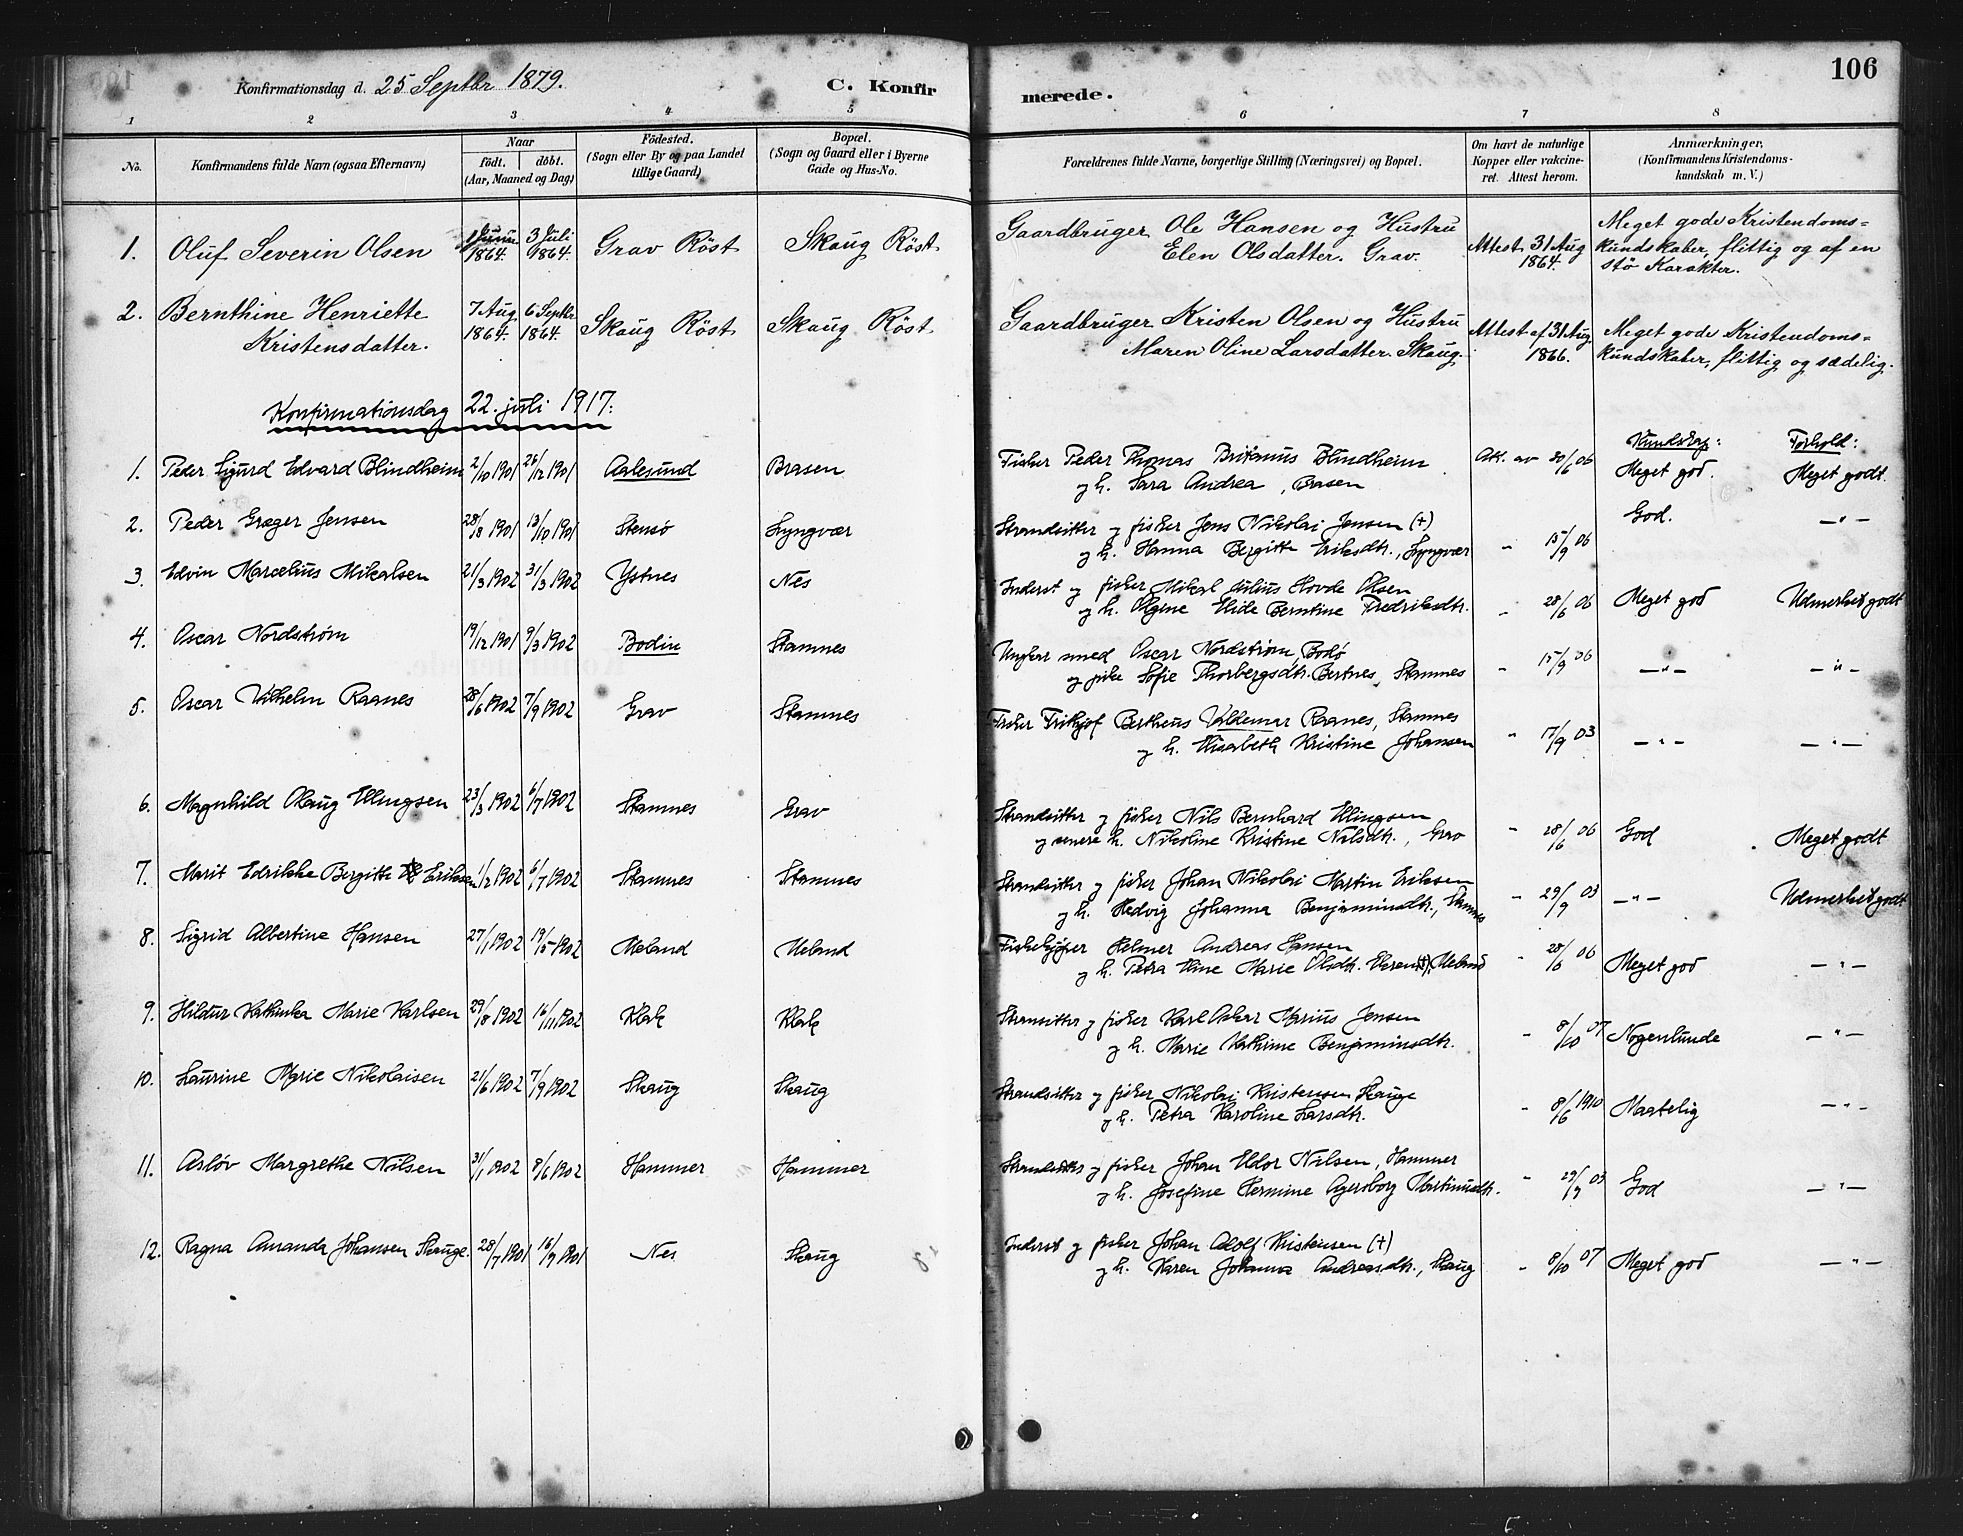 Konfirmationsdag d. 25 Septbr 1879. C. Konfirmerede. 106
1 2 3 4 5 6 7 8
No. Konfirmandens fulde Navn (ogsaa Efternavn) Naar født. døbt. (Aar, Maaned og Dag) Födested. (Sogn eller By og paa Landet tillige Gaard) Bopæl. (Sogn og Gaard eller i Byerne Gade og Hus-No. Forældrenes fulde Navne, borgerlige Stilling (Næringsvei) og Bopæl. Om havt de naturlige Kopper eller vakcineret. Attest herom. Anmerkninger, (Konfirmandens Kristendomskundskab m. V.)
1. Oluf Severin Olsen 1864. 3 Juli 1864. Grav Röst Skaug Röst Gaardbruger Ole Hansen og Hustru Attest 31 Aug Meget gode Kristendoms=
Elen Olsdatter. Grav. 1864. kundskaber, flittig og af en
stö Karakter.
2. Bernthine Henriette 7 Aug 1864. 6 Septbr 1864. Skaug Röst Skaug Röst Gaardbruger Kristen Olsen og Hustru Attest af 31 Aug. Meget gode Kristendoms=
Kristensdatter. Maren Oline Larsdatter. Skaug. 1866. kundskaber, flittig og sædelig.
Konfirmationsdag 22. juli 1917:
Kundskap: Forhold:
1. Peder Sigurd Edvard Blindheim 2/10 1901 26/12 1901 Aalesund Brasen Fisker Peder Thomas Britanus Blindheim Att. av 30/6 06 Meget god. Meget godt.
og h. Sara Andrea, Brasen
2. Peder Greger Jensen 28/8 1901 13/10 1901 Stensö Lyngvær Strandsitter og fisker Jens Nikolai Jensen (+) " 15/9 06 God. — " —
og h. Hanna Bergitte Eriksdtr., Lyngvær
3. Edvin Marcelius Mikalsen 21/3 1902 31/3 1902 Ystnes Nes Inderst og fisker Mikal Julius Hovde Olsen " 28/6 06 Meget god Udmerket godt
og h. Olgine Elide Berntine Fredriksdtr.
4. Oscar Nordstrøm 19/12 1901 9/3 1902 Bodin Stamnes Ungkar smed Oscar Nordstrøm, Bodø " 15/9 06 — " — — " —
og pike Sofie Thorbergsdtr. Bertnes, Stamnes
5. Oscar Vilhelm Raanes 28/6 1902 7/9 1902 Grav Stamnes Fisker Frithjof Bertheus Valdemar Raanes, Stamnes " 17/9 03 — " — — " —
og h. Elisabeth Kristine Johansen
6. Magnhild Olaug Ellingsen 23/3 1902 6/7 1902 Stamnes Grav Strandsitter og fisker Nils Bernhard Ellingsen " 28/6 06 God Meget godt
og senere h. Nikoline Kristine Nilsdtr., Grav
7. Marit Edrikke Bergitte Eriksen 1/2 1902 6/7 1902 Stamnes Stamnes Strandsitter og fisker Johan Nikolai Martin Eriksen " 29/9 03 — " — Udmerket godt
og h. Hedvig Johanna Benjaminsdtr., Stamnes
8. Sigrid Albertine Hansen 27/1 1902 19/5 1902 Meland Meland Fiskekjøper Helmer Andreas Hansen " 28/6 06 Meget god — " —
og h. Petra Eline Marie Olsdtr. (+), Meland
9. Hildur Kathinka Marie Karlsen 29/8 1902 16/11 1902 Klak Klak Strandsitter og fisker Karl Oskar Marius Jensen " 8/10 07 Nogenlunde — " —
og h. Marie Kathrine Benjaminsdtr.
10. Laurine Marie Nikolaisen 21/6 1902 7/9 1902 Skaug Skaug Strandsitter og fisker Nikolai Kristensen Skauge " 8/6 1910 Maatelig — " —
og h. Petra Karoline Larsdtr.
11. Asløv Margrethe Nilsen 31/1 1902 8/6 1902 Hammer Hammer Strandsitter og fisker Johan Eldor Nilsen, Hammer " 29/9 03 God — " —
og h. Josefine Hermine Agersborg Martinusdtr.
12. Ragna Amanda Johansen Skauge. 28/7 1901 16/9 1901 Nes Skaug Inderst og fisker Johan Adolf Kristensen (+) " 8/10 07 Meget god — " —
og h. Karen Johanna Andreasdtr., Skaug